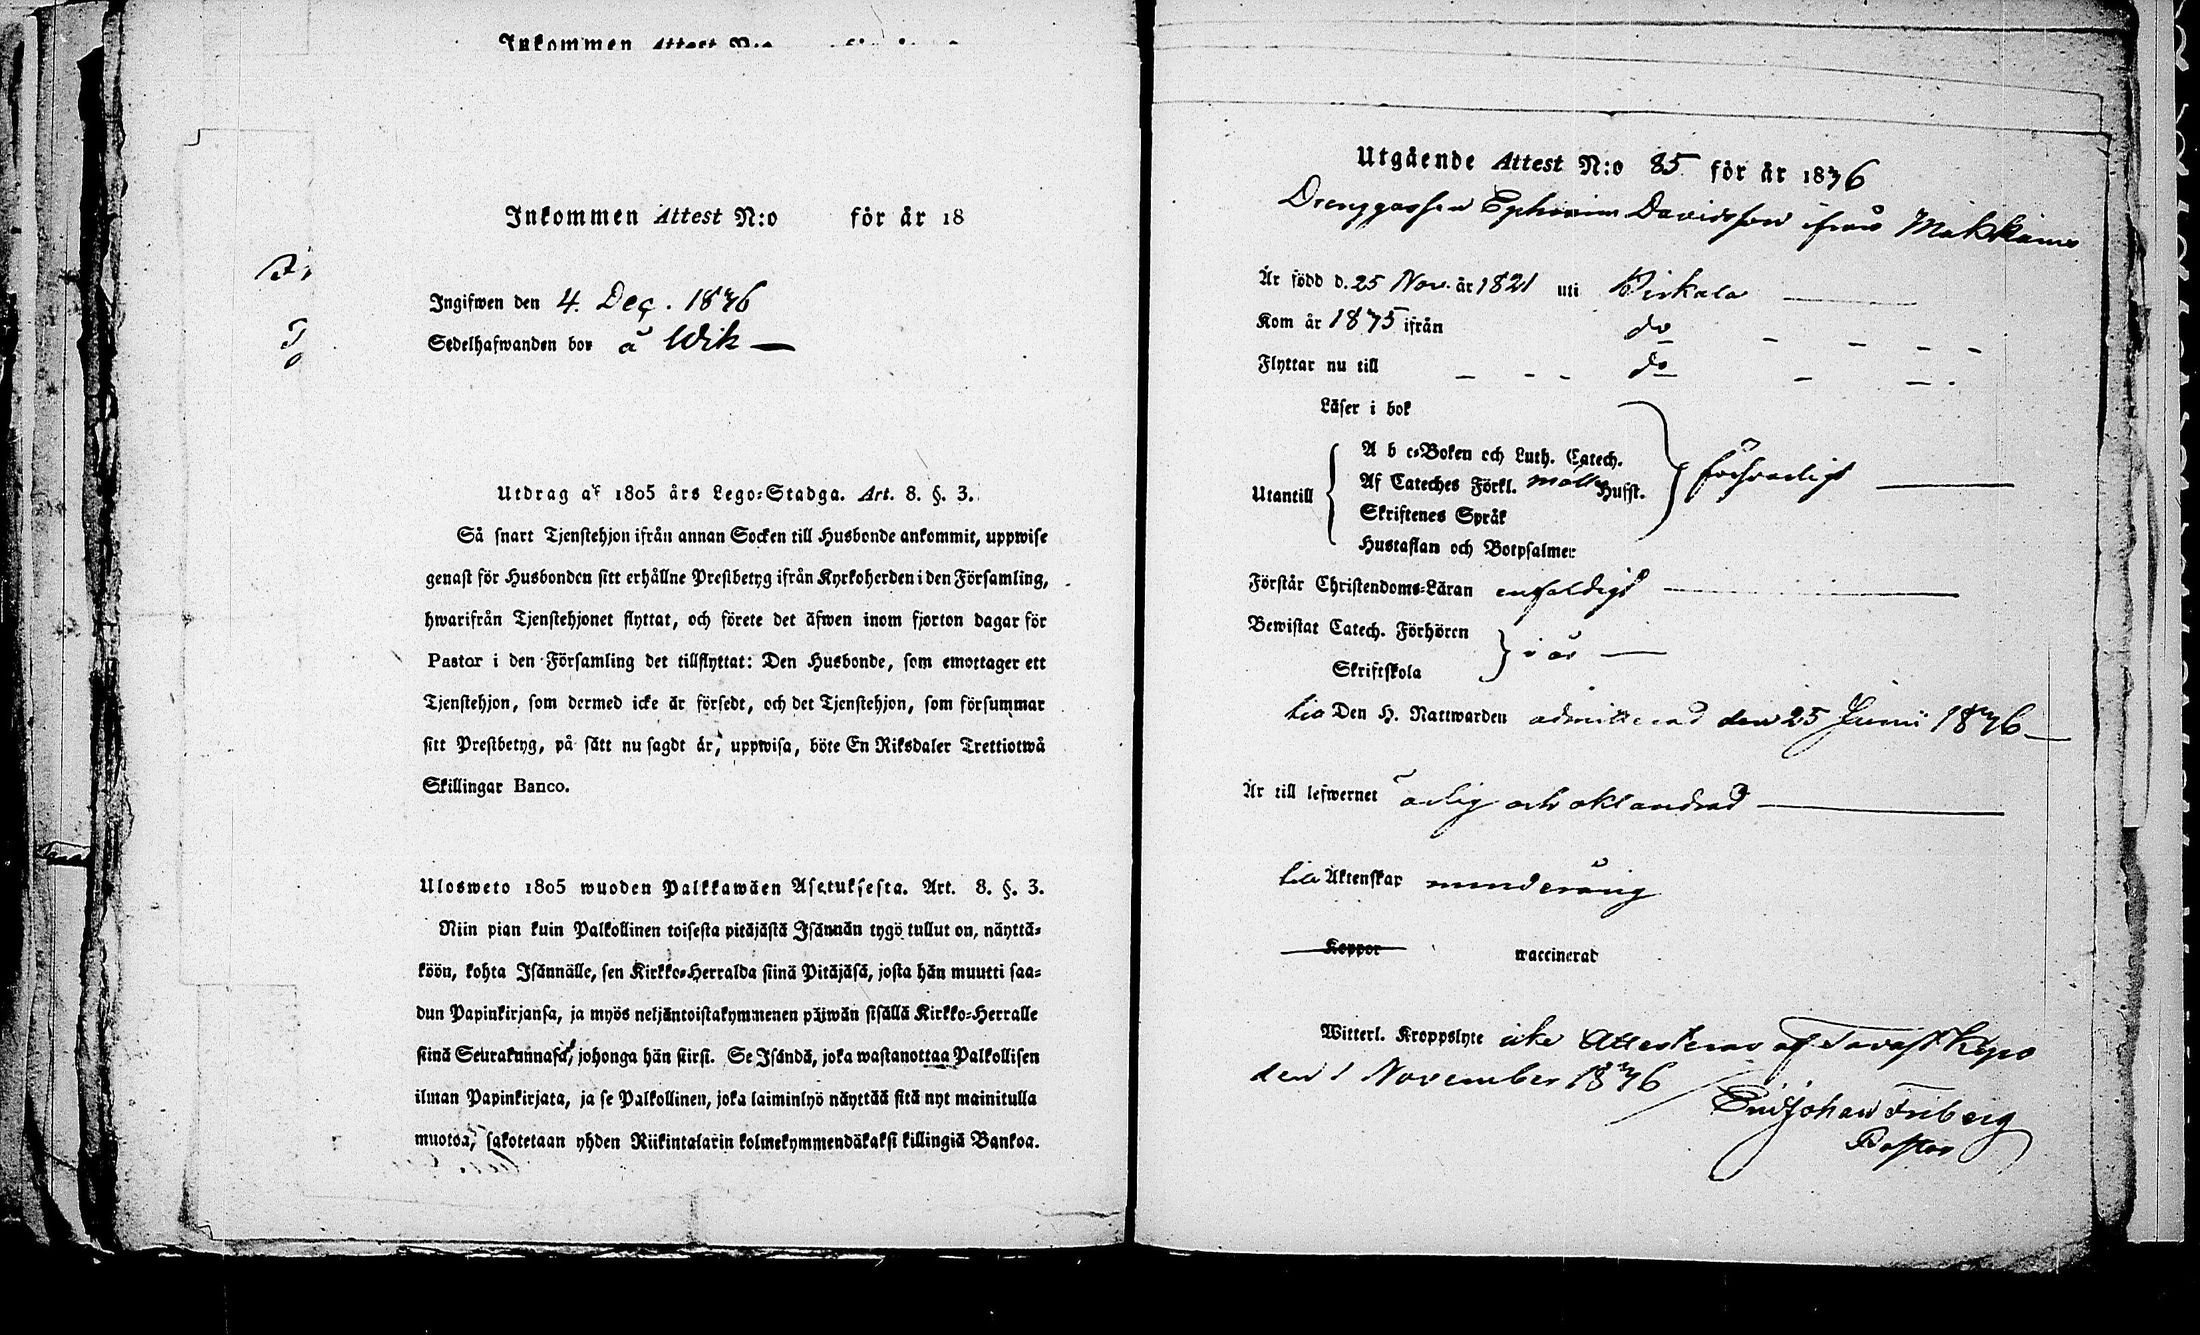 Inkommen Attest N:o
Inkommen Attest N:o för år 18
Ingifwen den 4. Dec. 1836
Sedelhafwanden bor å Wik
Utdrag af 1805 års Lego-Stadga. Art. 8. §. 3.
Så snart Tjenstehjon ifrån annan Socken till Husbonde ankommit, uppwise
genast för Husbonden sitt erhållne Prestbetyg ifrån Kyrkoherden i den Församling,
hwarifrån Tjenstehjonet flyttat, och förete det äfwen inom fjorton dagar för
Pastor i den Församling det tillflyttat: Den Husbonde, som emottager ett
Tjenstehjon, som dermed icke är försedt, och det Tjenstehjon, som försummar
sitt Prestbetyg, på sätt nu sagdt är, uppwisa, böte En Riksdaler Trettiotwå
Skillingar Banco.
Ulosweto 1805 wuoden Palkkawäen Asetuksesta. Art. 8. §. 3.
Niin pian kuin Palkollinen toisesta pitäjästä Isännän tygö tullut on, näyttä-
köön, kohta Isännälle, sen Kirkko-Herralda siinä Pitäjäsä, josta hän muutti saa-
dun Papinkirjansa, ja myös neljäntoistakymmenen päiwän sisällä Kirkko-Herralle
siinä Seurakunnasa, johonga hän siirsi. Se Isändä, joka wastanottaa Palkollisen
ilman Papinkirjata, ja se Palkollinen, joka laiminlyö näyttää sitä nyt mainitulla
muotoa, sakotetaan yhden Riikintalarin kolmekymmendäkaksi killingiä Bankoa.
Utgående Attest N:o 85 för år 1836
Drenggossen Ephraim Davidsson ifrån
Är född d. 25 Nov. år 1821 uti Birkala
Kom år 1835 ifrån do
Flyttar nu till do
Läser i bok
A b c-Boken och Luth. Catech.
Utantill Af Cateches Förkl. Husst. försvarligt
Skriftenes Språk
Hustaflan och Botpsalmer
Förstår Christendoms-Läran enfaldigt
Bewistat Catech. Förhören
i år
Skriftskola
till Den H. Nattwarden admitterad den 25 Junii 1836
Är till lefwernet ärlig och oklandrad
till Äktenskap minderårig
Koppor waccinerad
Witterl. Kroppslyte icke Attesteras af Tavastkyro
den 1 November 1836
Johan Friberg
Pastor